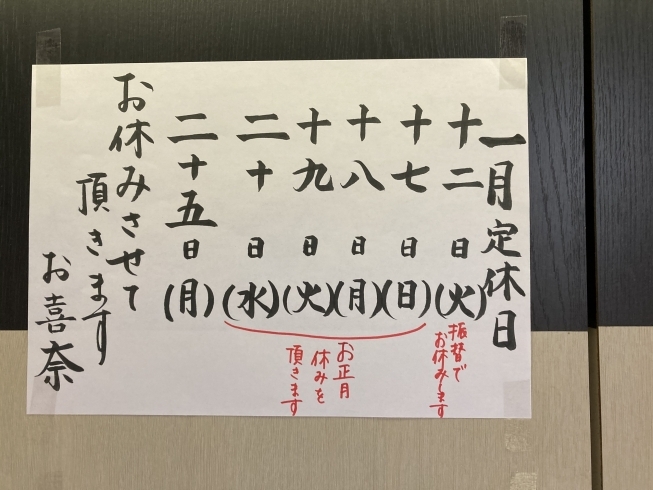 一月定休日
十二日(火)
振替で
お休みします
十七日(日)
十八日(月)
十九日(火)
二十日(水)
お正月
休みを
頂きます
二十五日(月)
お休みさせて
頂きます
お喜奈